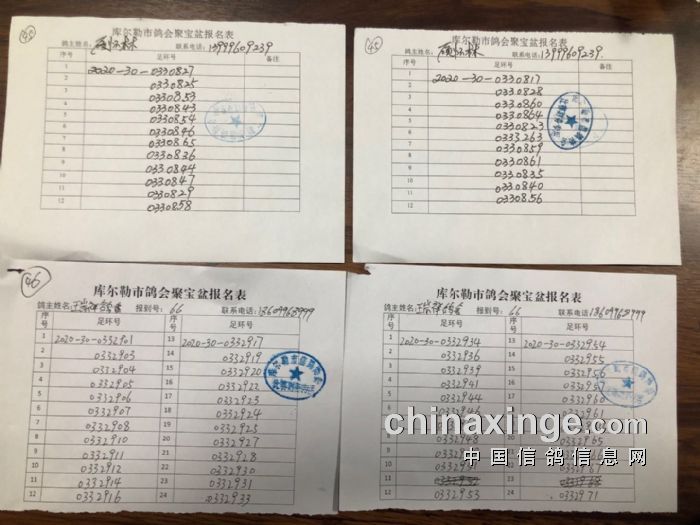 45
库尔勒市鸽会聚宝盆报名表
鸽主姓名: 联系电话: 13999609239
序号 足环号 备注
1 2020-30-0330827
2 0330825
3 0330853
4 0330843
5 0330854
6 0330846
7 0330865
8 0330836
9 0330844
10 0330847
11 0330829
12 0330858
45
库尔勒市鸽会聚宝盆报名表
鸽主姓名: 联系电话: 13999609239
序号 足环号 备注
1 2020-30-0330817
2 0330828
3 0330860
4 0330864
5 0330823
6 033263
7 0330859
8 0330861
9 0330835
10 0330840
11 0330856
12
46
库尔勒市鸽会聚宝盆报名表
鸽主姓名: 报到号: 66 联系电话:
序号 足环号 序号 足环号
1 2020-30-0332901 13 2020-30-0332917
2 0332903 14 0332919
3 0332904 15 0332920
4 0332905 16 0332922
5 0332906 17 0332923
6 0332907 18 0332924
7 0332908 19 0332925
8 0332910 20 0332927
9 0332911 21 0332928
10 0332912 22 0332930
11 0332914 23 0332931
12 0332916 24 0332933
库尔勒市鸽会聚宝盆报名表
鸽主姓名: 报到号: 66 联系电话:
序号 足环号 序号 足环号
1 2020-30-0332934 13 2020-30-0332954
2 0332936 14 0332955
3 0332939 15 0332956
4 0332941 16
5 0332944 17 0332960
6 0332946 18 0332961
20 0332965
12 0332953 24 0332971
chinaxinge.com
中国信鸽信息网